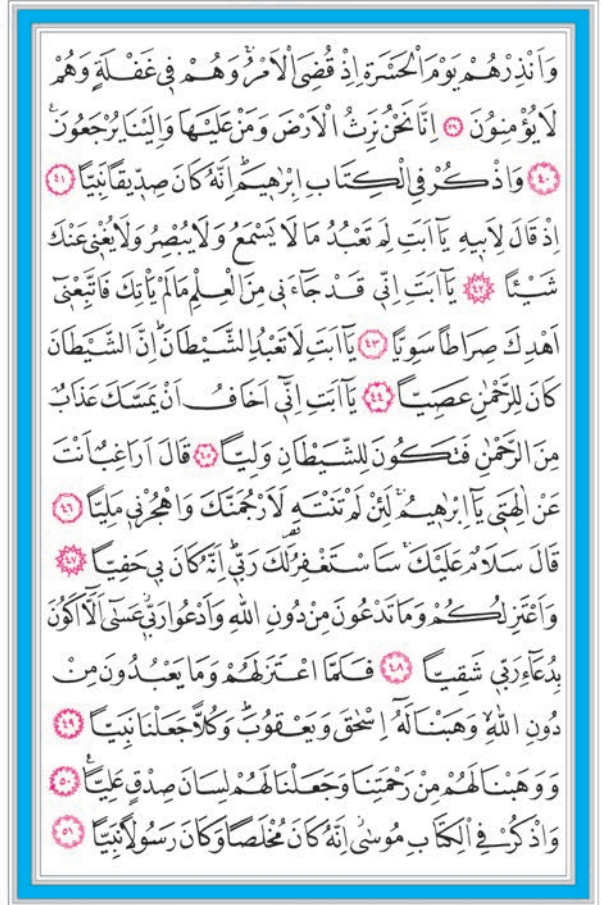 وَاَنْذِرْهُمْ يَوْمَ الْحَسْرَةِ اِذْ قُضِيَ الْاَمْرُۢ وَهُمْ ف۪ي غَفْلَةٍ وَهُمْ
لَا يُؤْمِنُونَ ﴿٣٩﴾ اِنَّا نَحْنُ نَرِثُ الْاَرْضَ وَمَنْ عَلَيْهَا وَاِلَيْنَا يُرْجَعُونَ۟
﴿٤٠﴾ وَاذْكُرْ فِي الْكِتَابِ اِبْرٰه۪يمَۜ اِنَّهُ كَانَ صِدّ۪يقًا نَبِيًّا ﴿٤١﴾
اِذْ قَالَ لِاَب۪يهِ يَٓا اَبَتِ لِمَ تَعْبُدُ مَا لَا يَسْمَعُ وَلَا يُبْصِرُ وَلَا يُغْن۪ي عَنْكَ
شَيْـًٔا ﴿٤٢﴾ يَٓا اَبَتِ اِنّ۪ي قَدْ جَٓاءَن۪ي مِنَ الْعِلْمِ مَا لَمْ يَأْتِكَ فَاتَّبِعْن۪ٓي
اَهْدِكَ صِرَاطًا سَوِيًّا ﴿٤٣﴾ يَٓا اَبَتِ لَا تَعْبُدِ الشَّيْطَانَۜ اِنَّ الشَّيْطَانَ
كَانَ لِلرَّحْمٰنِ عَصِيًّا ﴿٤٤﴾ يَٓا اَبَتِ اِنّ۪ٓي اَخَافُ اَنْ يَمَسَّكَ عَذَابٌ
مِنَ الرَّحْمٰنِ فَتَكُونَ لِلشَّيْطَانِ وَلِيًّا ﴿٤٥﴾ قَالَ اَرَاغِبٌ اَنْتَ
عَنْ اٰلِهَت۪ي يَٓا اِبْرٰه۪يمُۚ لَئِنْ لَمْ تَنْتَهِ لَاَرْجُمَنَّكَ وَاهْجُرْن۪ي مَلِيًّا ﴿٤٦﴾
قَالَ سَلَامٌ عَلَيْكَۚ سَاَسْتَغْفِرُ لَكَ رَبّ۪يۜ اِنَّهُ كَانَ ب۪ي حَفِيًّا ﴿٤٧﴾
وَاَعْتَزِلُكُمْ وَمَا تَدْعُونَ مِنْ دُونِ اللّٰهِ وَاَدْعُوا رَبّ۪يۘ عَسٰٓى اَلَّٓا اَكُونَ
بِدُعَٓاءِ رَبّ۪ي شَقِيًّا ﴿٤٨﴾ فَلَمَّا اعْتَزَلَهُمْ وَمَا يَعْبُدُونَ مِنْ
دُونِ اللّٰهِۙ وَهَبْنَا لَهُٓ اِسْحٰقَ وَيَعْقُوبَۜ وَكُلًّا جَعَلْنَا نَبِيًّا ﴿٤٩﴾
وَوَهَبْنَا لَهُمْ مِنْ رَحْمَتِنَا وَجَعَلْنَا لَهُمْ لِسَانَ صِدْقٍ عَلِيًّا۟ ﴿٥٠﴾
وَاذْكُرْ فِي الْكِتَابِ مُوسٰىۘ اِنَّهُ كَانَ مُخْلَصًا وَكَانَ رَسُولًا نَبِيًّا ﴿٥١﴾